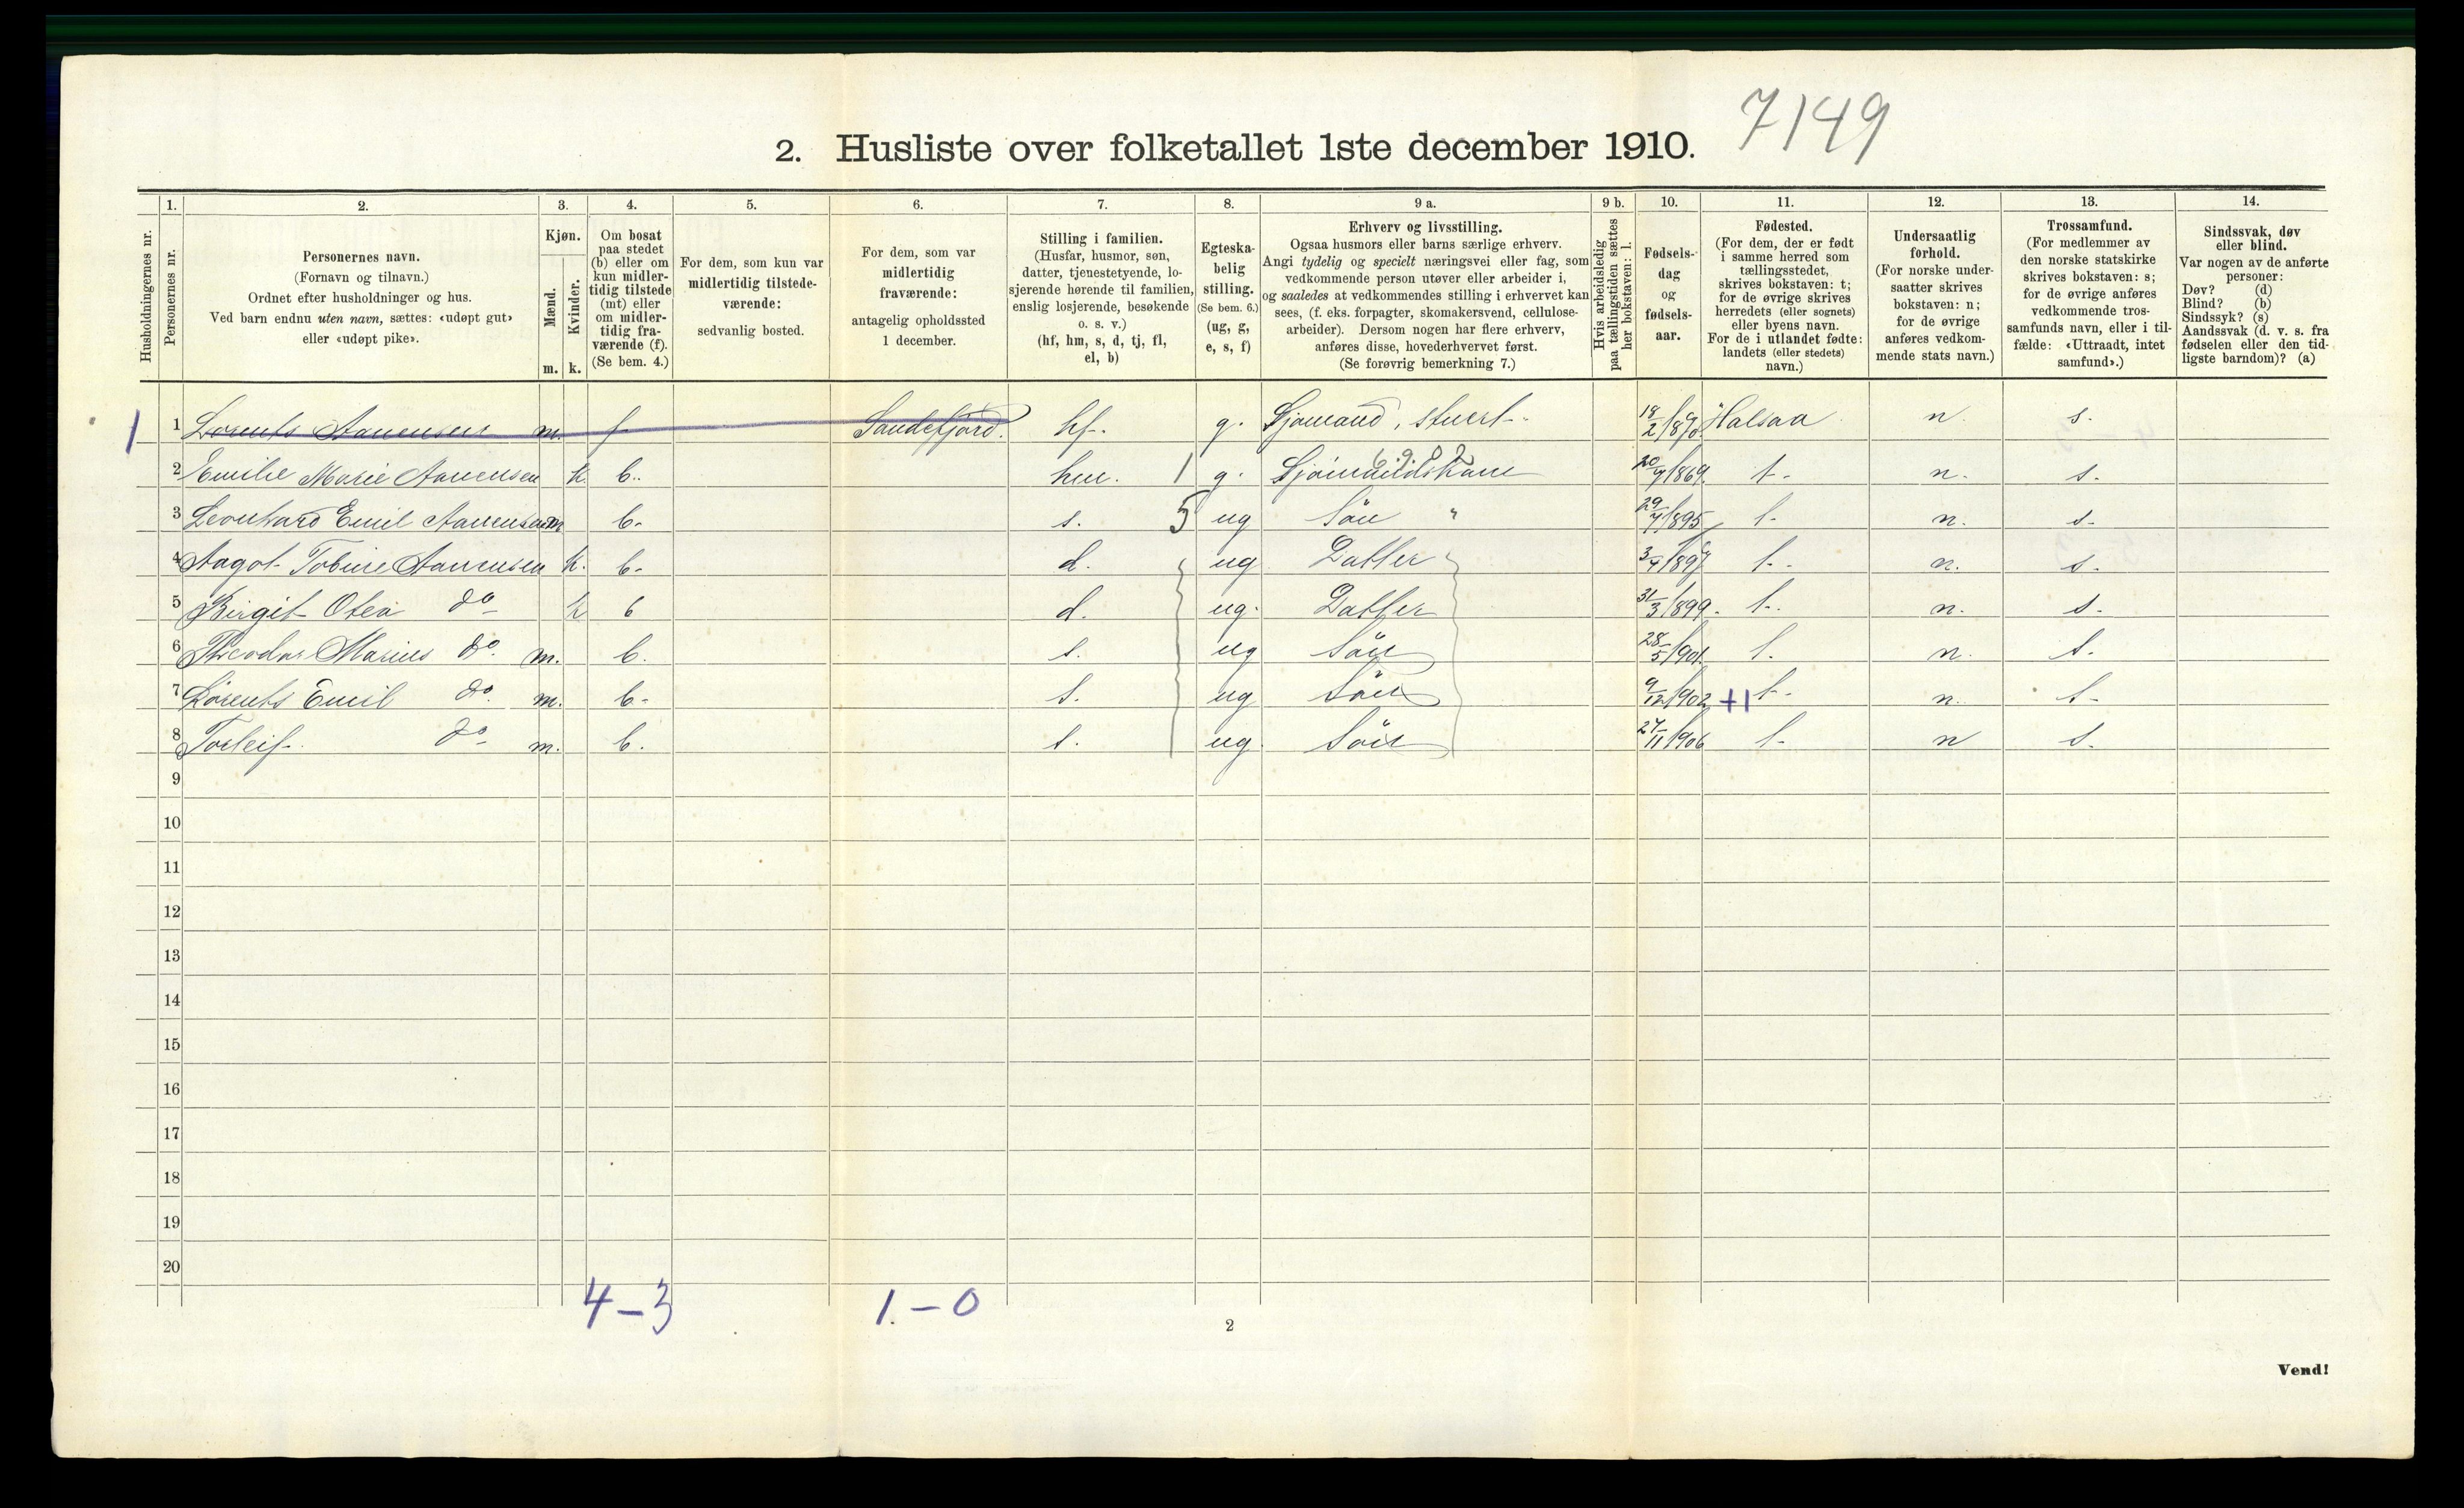 7149
2. Husliste over folketallet 1ste december 1910.
1. 2. 3. 4. 5. 6. 7. 8. 9 a. 9 b. 10. 11. 12. 13. 14.
Husholdningernes nr.
Personernes nr.
Personernes navn.
(Fornavn og tilnavn.)
Ordnet efter husholdninger og hus.
Ved barn endnu uten navn, sættes: «udøpt gut»
eller «udøpt pike».
Kjøn.
Mænd.
Kvinder.
m. k.
Om bosat
paa stedet
(b) eller om
kun midler-
tidig tilstede
(mt) eller
om midler-
tidig fra-
værende (f).
(Se bem. 4.)
For dem, som kun var
midlertidig tilstede-
værende:
sedvanlig bosted.
For dem, som var
midlertidig
fraværende:
antagelig opholdssted
1 december.
Stilling i familien.
(Husfar, husmor, søn,
datter, tjenestetyende, lo-
sjerende hørende til familien,
enslig losjerende, besøkende
o. s. v.)
(hf, hm, s, d, tj, fl,
el, b)
Egteska-
belig
stilling.
(Se bem. 6.)
(ug, g,
e, s, f)
Erhverv og livsstilling.
Ogsaa husmors eller barns særlige erhverv.
Angi tydelig og specielt næringsvei eller fag, som
vedkommende person utøver eller arbeider i,
og saaledes at vedkommendes stilling i erhvervet kan
sees, (f. eks. forpagter, skomakersvend, cellulose-
arbeider). Dersom nogen har flere erhverv,
anføres disse, hovederhvervet først.
(Se forøvrig bemerkning 7.)
Hvis arbeidsledig
paa tællingstiden sættes
her bokstaven: l.
Fødsels-
dag
og
fødsels-
aar.
Fødested.
(For dem, der er født
i samme herred som
tællingsstedet,
skrives bokstaven: t;
for de øvrige skrives
herredets (eller sognets)
eller byens navn.
For de i utlandet fødte:
landets (eller stedets)
navn.)
Undersaatlig
forhold.
(For norske under-
saatter skrives
bokstaven: n;
for de øvrige
anføres vedkom-
mende stats navn.)
Trossamfund.
(For medlemmer av
den norske statskirke
skrives bokstaven: s;
for de øvrige anføres
vedkommende tros-
samfunds navn, eller i til-
fælde: «Uttraadt, intet
samfund».)
Sindssvak, døv
eller blind.
Var nogen av de anførte
personer:
Døv? (d)
Blind? (b)
Sindssyk? (s)
Aandssvak (d. v. s. fra
fødselen eller den tid-
ligste barndom)? (a)
1 1 Lorents Aanensen m. f Sandefjord. hf. g. Sjømand, stuert 18/2 1870 Halsaa n s.
2 Emilie Marie Aanensen k. b. hm. 1 g. Sjømandskone 20/7 1869. t. n. s.
3 Leonhard Emil Aanensen m b. s. 5 ug Sön " 29/7 1895 t. n. s.
4 Aagot Tobine Aanensen k. b. d. ug Datter 3/4 1897 t. n. s.
5 Birgit Otea do k b d. ug. Datter 31/3 1899. t. n. s.
6 Theodor Marius do. m. b. s. ug Sön 28/5 1901. t. n. s.
7 Lorents Emil do. m. b. s. ug Sön 9/12 1902 +1 t. n. s.
8 Torleif do m. b. s. ug. Sön 27/11 1906 t. n s.
9
10
11
12
13
14
15
16
17
18
19
20
4–3 1.–0
2
Vend!